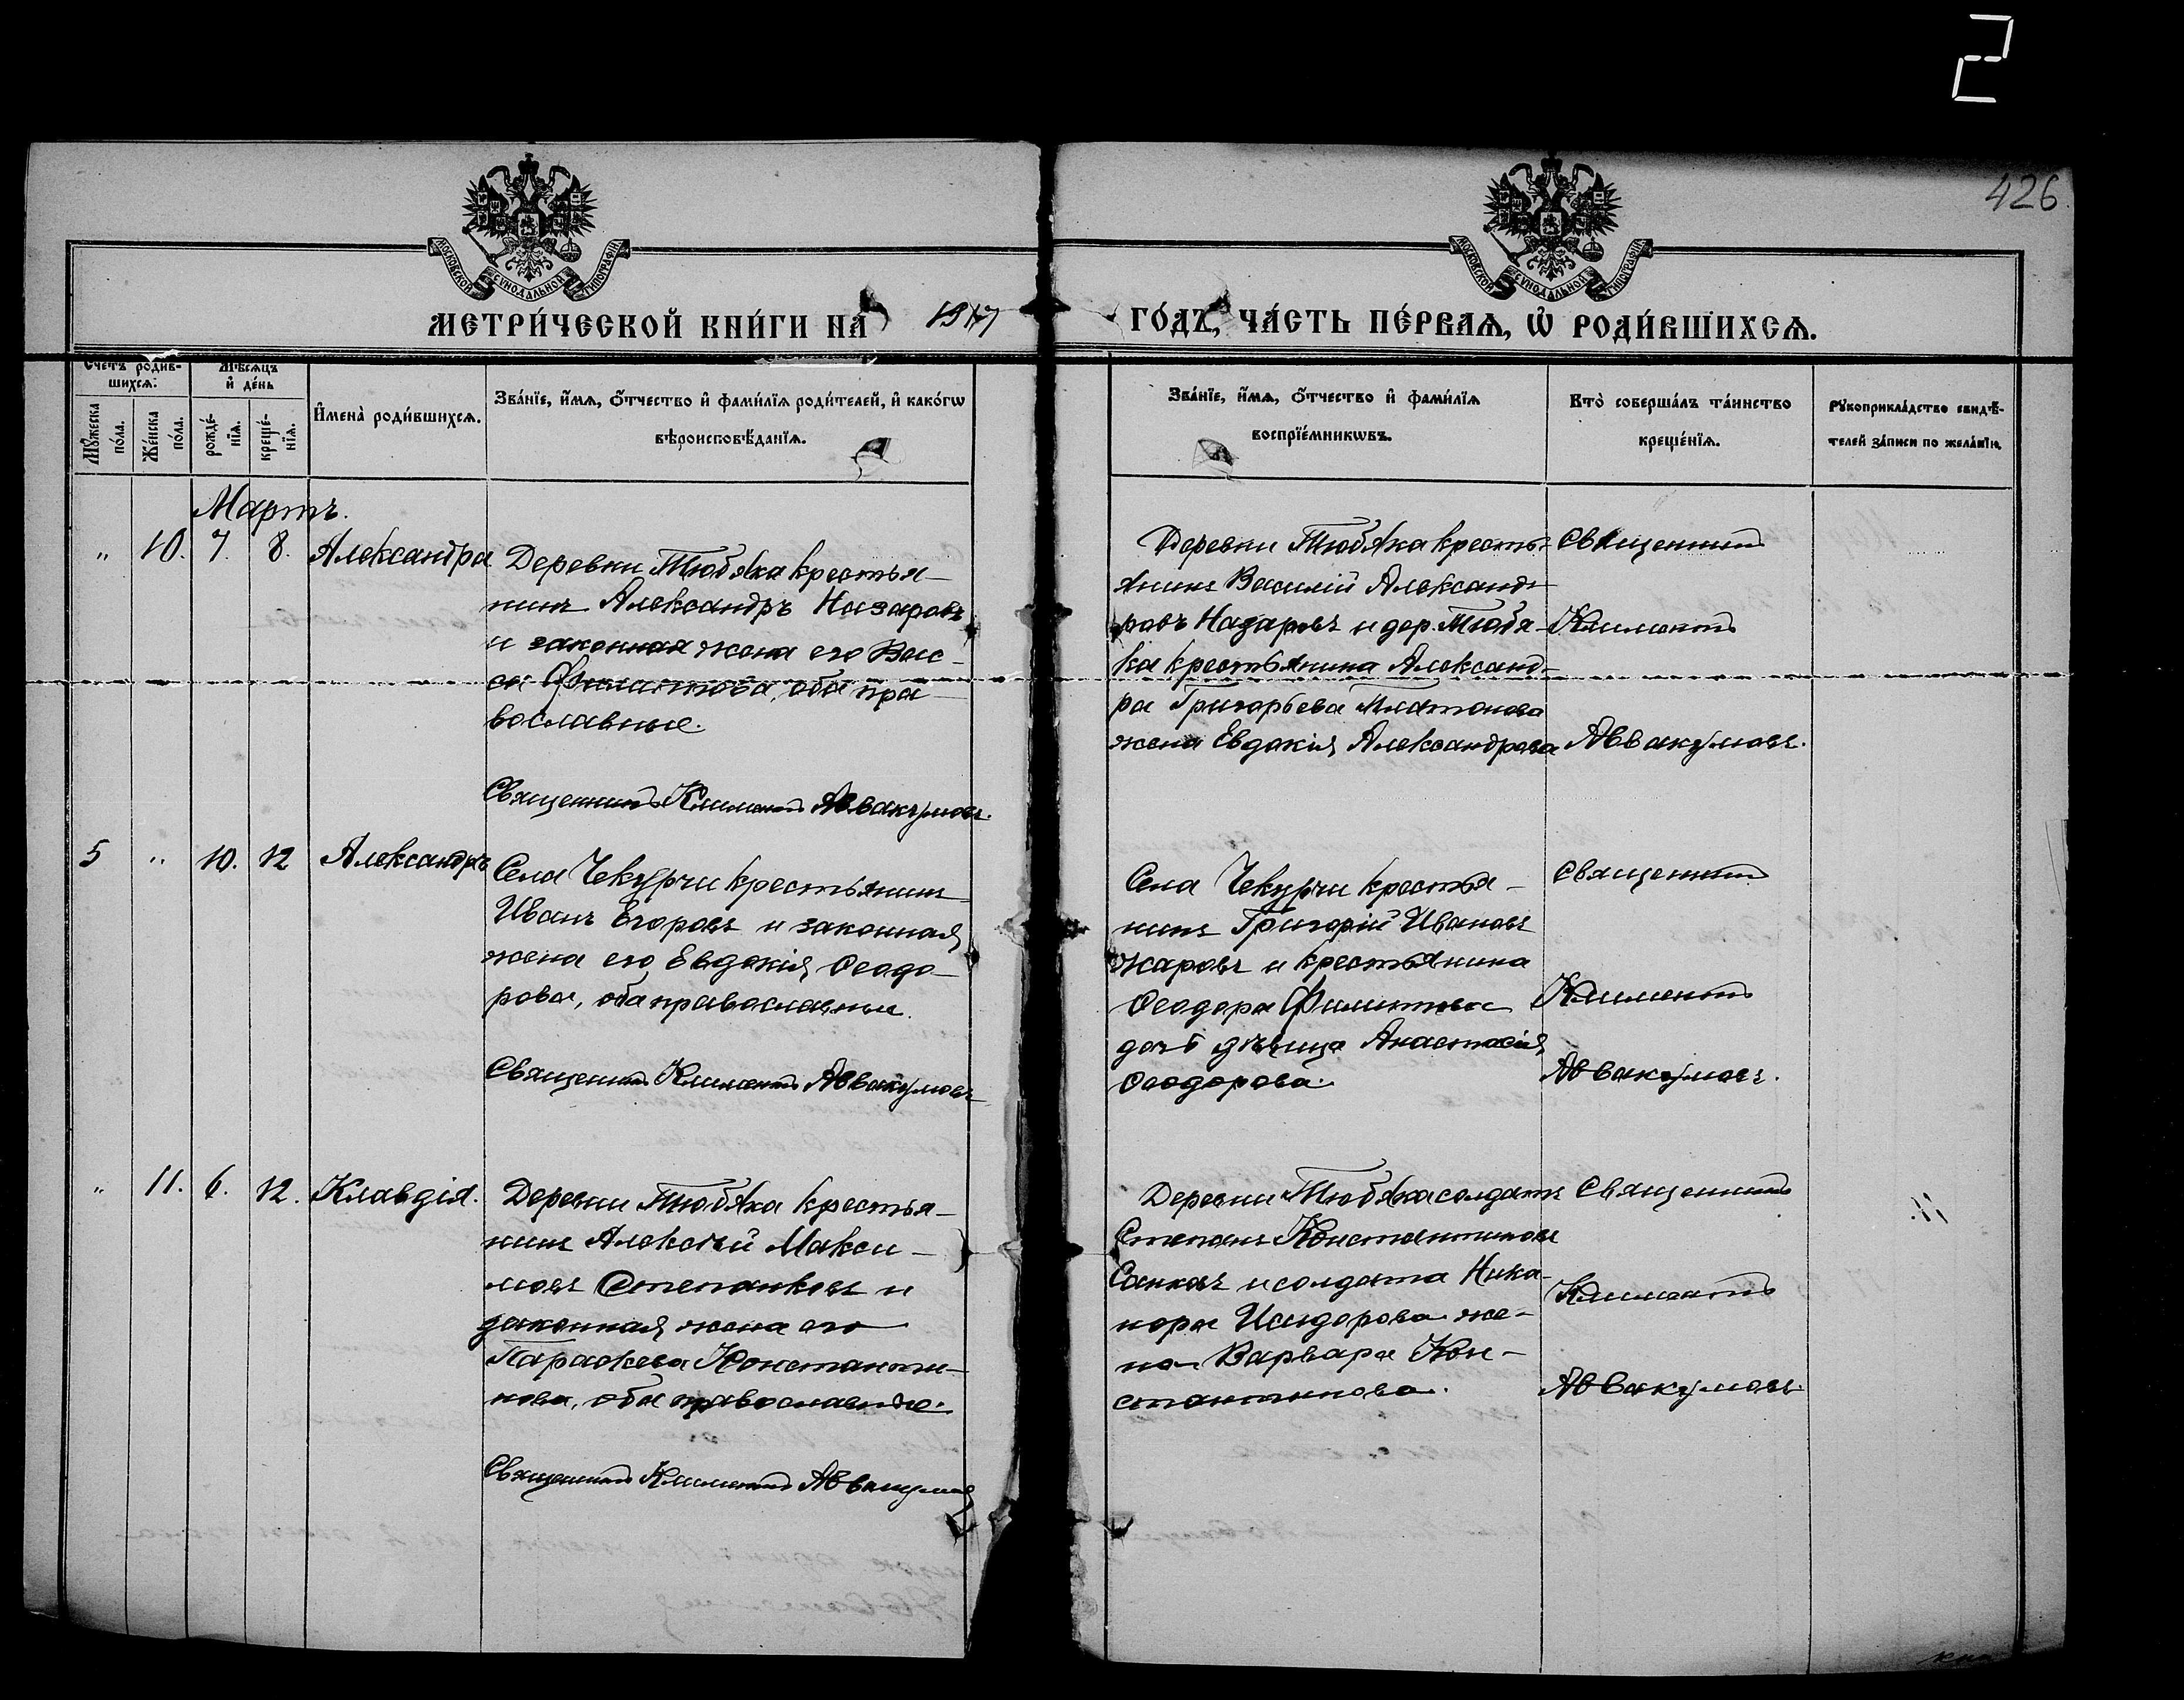 2
426
МОСКОВСКОЙ СѴНОДАЛЬНОЙ ТИПОГРАФІИ
МОСКОВСКОЙ СѴНОДАЛЬНОЙ ТИПОГРАФІИ
МЕТРИ́ЧЕСКОЙ КНИ́ГИ НА̀ 1917 ГО́ДЪ, ЧА́СТЬ ПЕ́РВАѦ, Ѽ РОДИ́ВШИХСѦ.
Счетъ родив-
шихсѧ:
Мѣсѧцъ
и҆ де́нь
Мꙋжеска
по́ла.
Же́нска
по́ла.
рожде́-
нїѧ.
креще́-
нїѧ.
И҆мена̀ роди́вшихсѧ.
Зва́нїе, и҆́мѧ, ѻ҆́тчество и҆ фами́лїѧ роди́телей, и҆ како́гѡ
вѣроисповѣ́данїѧ.
Зва́нїе, и҆́мѧ, ѻ҆́тчество и҆ фами́лїѧ
воспрїе́мникѡвъ.
Кто̀ соверша́лъ та́инство
креще́нїѧ.
Рꙋкоприкла́дство свидѣ́-
телей за́писи по жела́нїю.
Мартъ.
" 10. 7. 8. Александра
Деревни Тюбяка крестья-
нинъ Александръ Назаровъ
и законная жена его Вас-
са Филиппова, оба пра-
вославные.
Священникъ Климентъ Аввакумовъ.
Деревни Тюбяка кресть-
янинъ Василій Александ-
ровъ Назаровъ и дер. Тюбя-
ка крестьянина Александ-
ра Григорьева Платонова
жена Евдокія Александрова
Священникъ
Климентъ
Аввакумовъ.
5 " 10. 12 Александръ
Села Чекурчи крестьянинъ
Иванъ Егоровъ и законная
жена его Евдокія Ѳеодо-
рова, оба православные.
Священникъ Климентъ Аввакумовъ
Села Чекурчи крестья-
нинъ Григорій Ивановъ
Жаровъ и крестьянина
Ѳеодора Филиппова
дочь дѣвица Анастасія
Ѳеодорова.
Священникъ
Климентъ
Аввакумовъ.
" 11. 6. 12. Клавдія.
Деревни Тюбяка крестья-
нинъ Алексѣй Макси-
мовъ Степанковъ и
законная жена его
Параскева Константи-
нова, оба православные.
Священникъ Климентъ Аввакумовъ
Деревни Тюбяка солдатъ
Степанъ Константиновъ
Санковъ и солдата Ника-
нора Исидорова же-
на Варвара Кон-
стантинова.
Священникъ
Климентъ
Аввакумовъ.